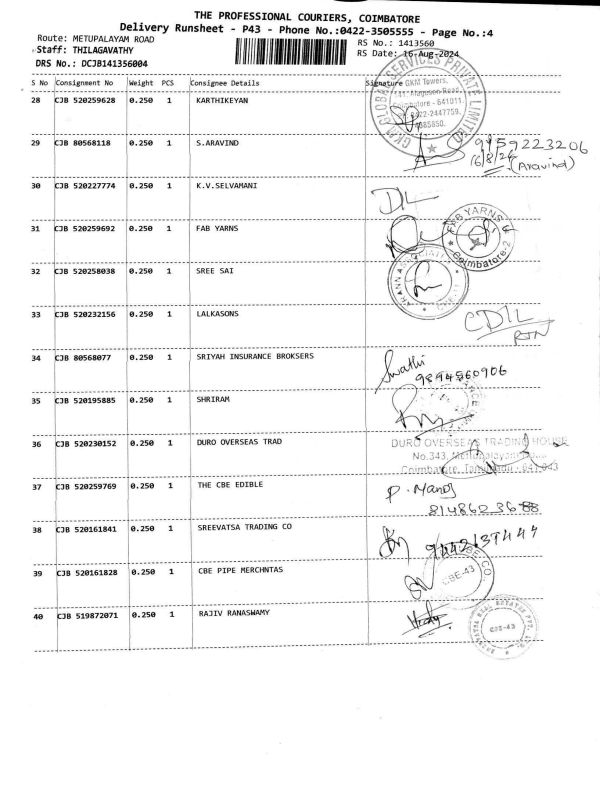 THE PROFESSIONAL COURIERS, COIMBATORE
Delivery Runsheet - P43 - Phone No.:0422-3505555 - Page No.:4
Route: METUPALAYAM ROAD
RS No.: 1413560
Staff: THILAGAVATHY
RS Date: 16-Aug-2024
DRS No.: DCJB141356004
S No Consignment No Weight PCS Consignee Details Signature
GKM GLOBAL SERVICES PRIVATE LIMITED
GKM Towers,
Coimbatore - 641011
0422-2447759.
28 CJB 520259628 0.250 1 KARTHIKEYAN
29 CJB 80568118 0.250 1 S.ARAVIND
9159223206
16/8/24
(Aravind)
30 CJB 520227774 0.250 1 K.V.SELVAMANI
DL
31 CJB 520259692 0.250 1 FAB YARNS
FAB YARNS
Coimbatore-2
32 CJB 520258038 0.250 1 SREE SAI
33 CJB 520232156 0.250 1 LALKASONS
CDIL
RTN
34 CJB 80568077 0.250 1 SRIYAH INSURANCE BROKSERS
Swathi
9894560906
35 CJB 520195885 0.250 1 SHRIRAM
36 CJB 520230152 0.250 1 DURO OVERSEAS TRAD
DURO OVERSEAS TRADING HOUSE
No.343, Mettupalayam Road
Coimbatore, Tamilnadu - 641 043
37 CJB 520259769 0.250 1 THE CBE EDIBLE
P. Manoj
8148623688
38 CJB 520161841 0.250 1 SREEVATSA TRADING CO
9442137447
39 CJB 520161828 0.250 1 CBE PIPE MERCHNTAS
CBE-43
40 CJB 519872071 0.250 1 RAJIV RANASWAMY
CBE-43